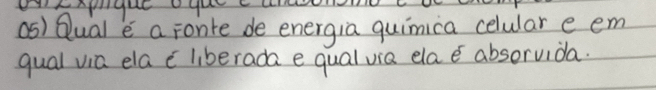 04) Explique o que é anabolismo e
05) Qual é a fonte de energia química celular e em
qual via ela é liberada e qual via ela é absorvida.